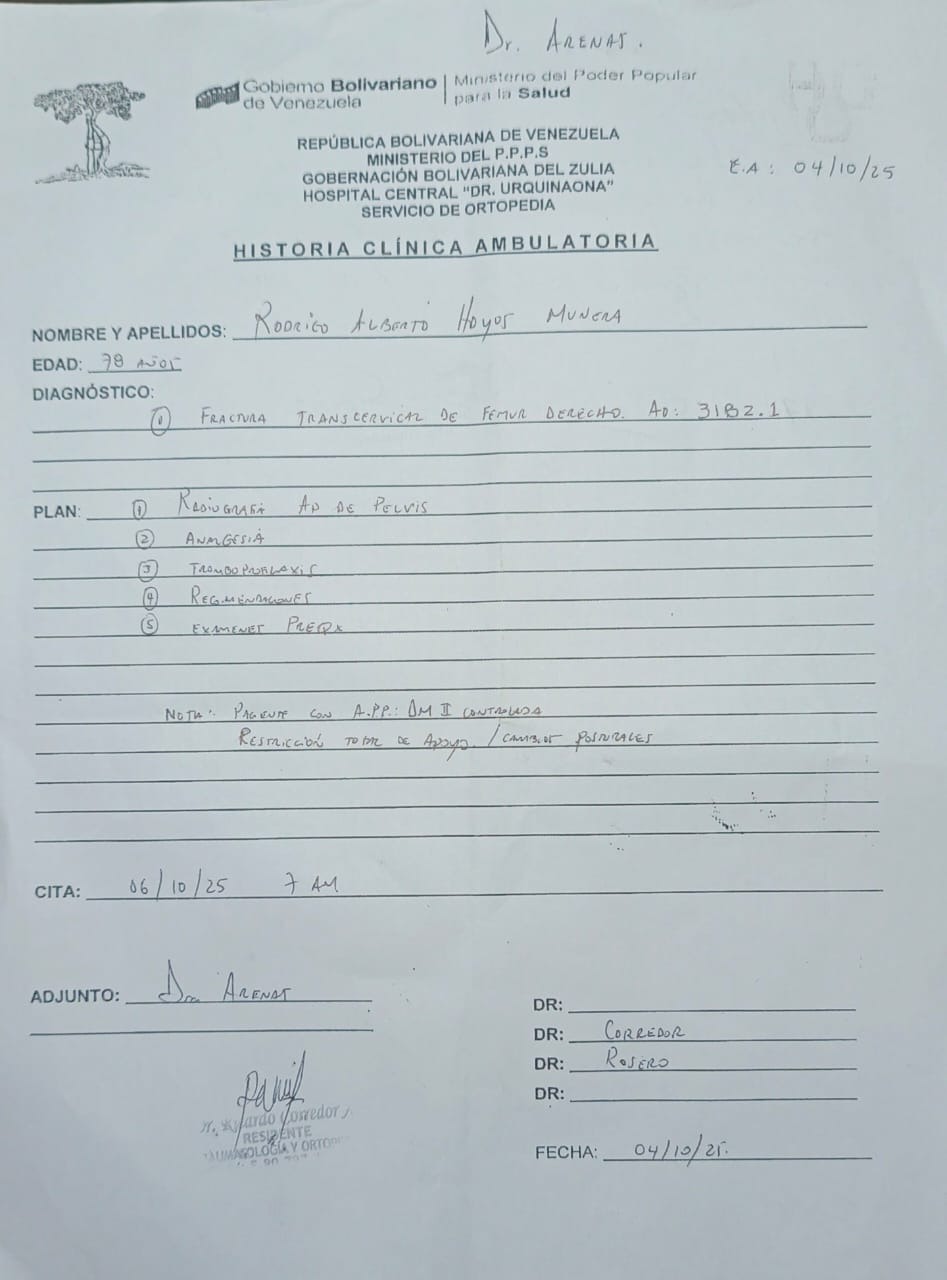 Dr. ARENAS.
Gobierno Bolivariano de Venezuela | Ministerio del Poder Popular para la Salud
REPÚBLICA BOLIVARIANA DE VENEZUELA
MINISTERIO DEL P.P.P.S
GOBERNACIÓN BOLIVARIANA DEL ZULIA
HOSPITAL CENTRAL "DR. URQUINAONA"
SERVICIO DE ORTOPEDIA
E.A: 04/10/25
HISTORIA CLÍNICA AMBULATORIA
NOMBRE Y APELLIDOS: RODRIGO ALBERTO HOYOS MUNERA
EDAD: 78 AÑOS
DIAGNÓSTICO:
① FRACTURA TRANSCERVICAL DE FEMUR DERECHO. AO: 31B2.1
PLAN: ① RADIOGRAFÍA AP DE PELVIS
② ANALGESIA
③ TROMBOPROFILAXIS
④ RECOMENDACIONES
⑤ EXAMENES PREQX
NOTA: PACIENTE CON A.P.P.: DM II CONTROLADA
RESTRICCIÓN TOTAL DE APOYO. / CAMBIOS POSTURALES
CITA: 06/10/25 7 AM
ADJUNTO: ARENAS
DR:
DR: CORREDOR
DR: ROSERO
DR:
Corredor
RESIDENTE
FECHA: 04/10/25.